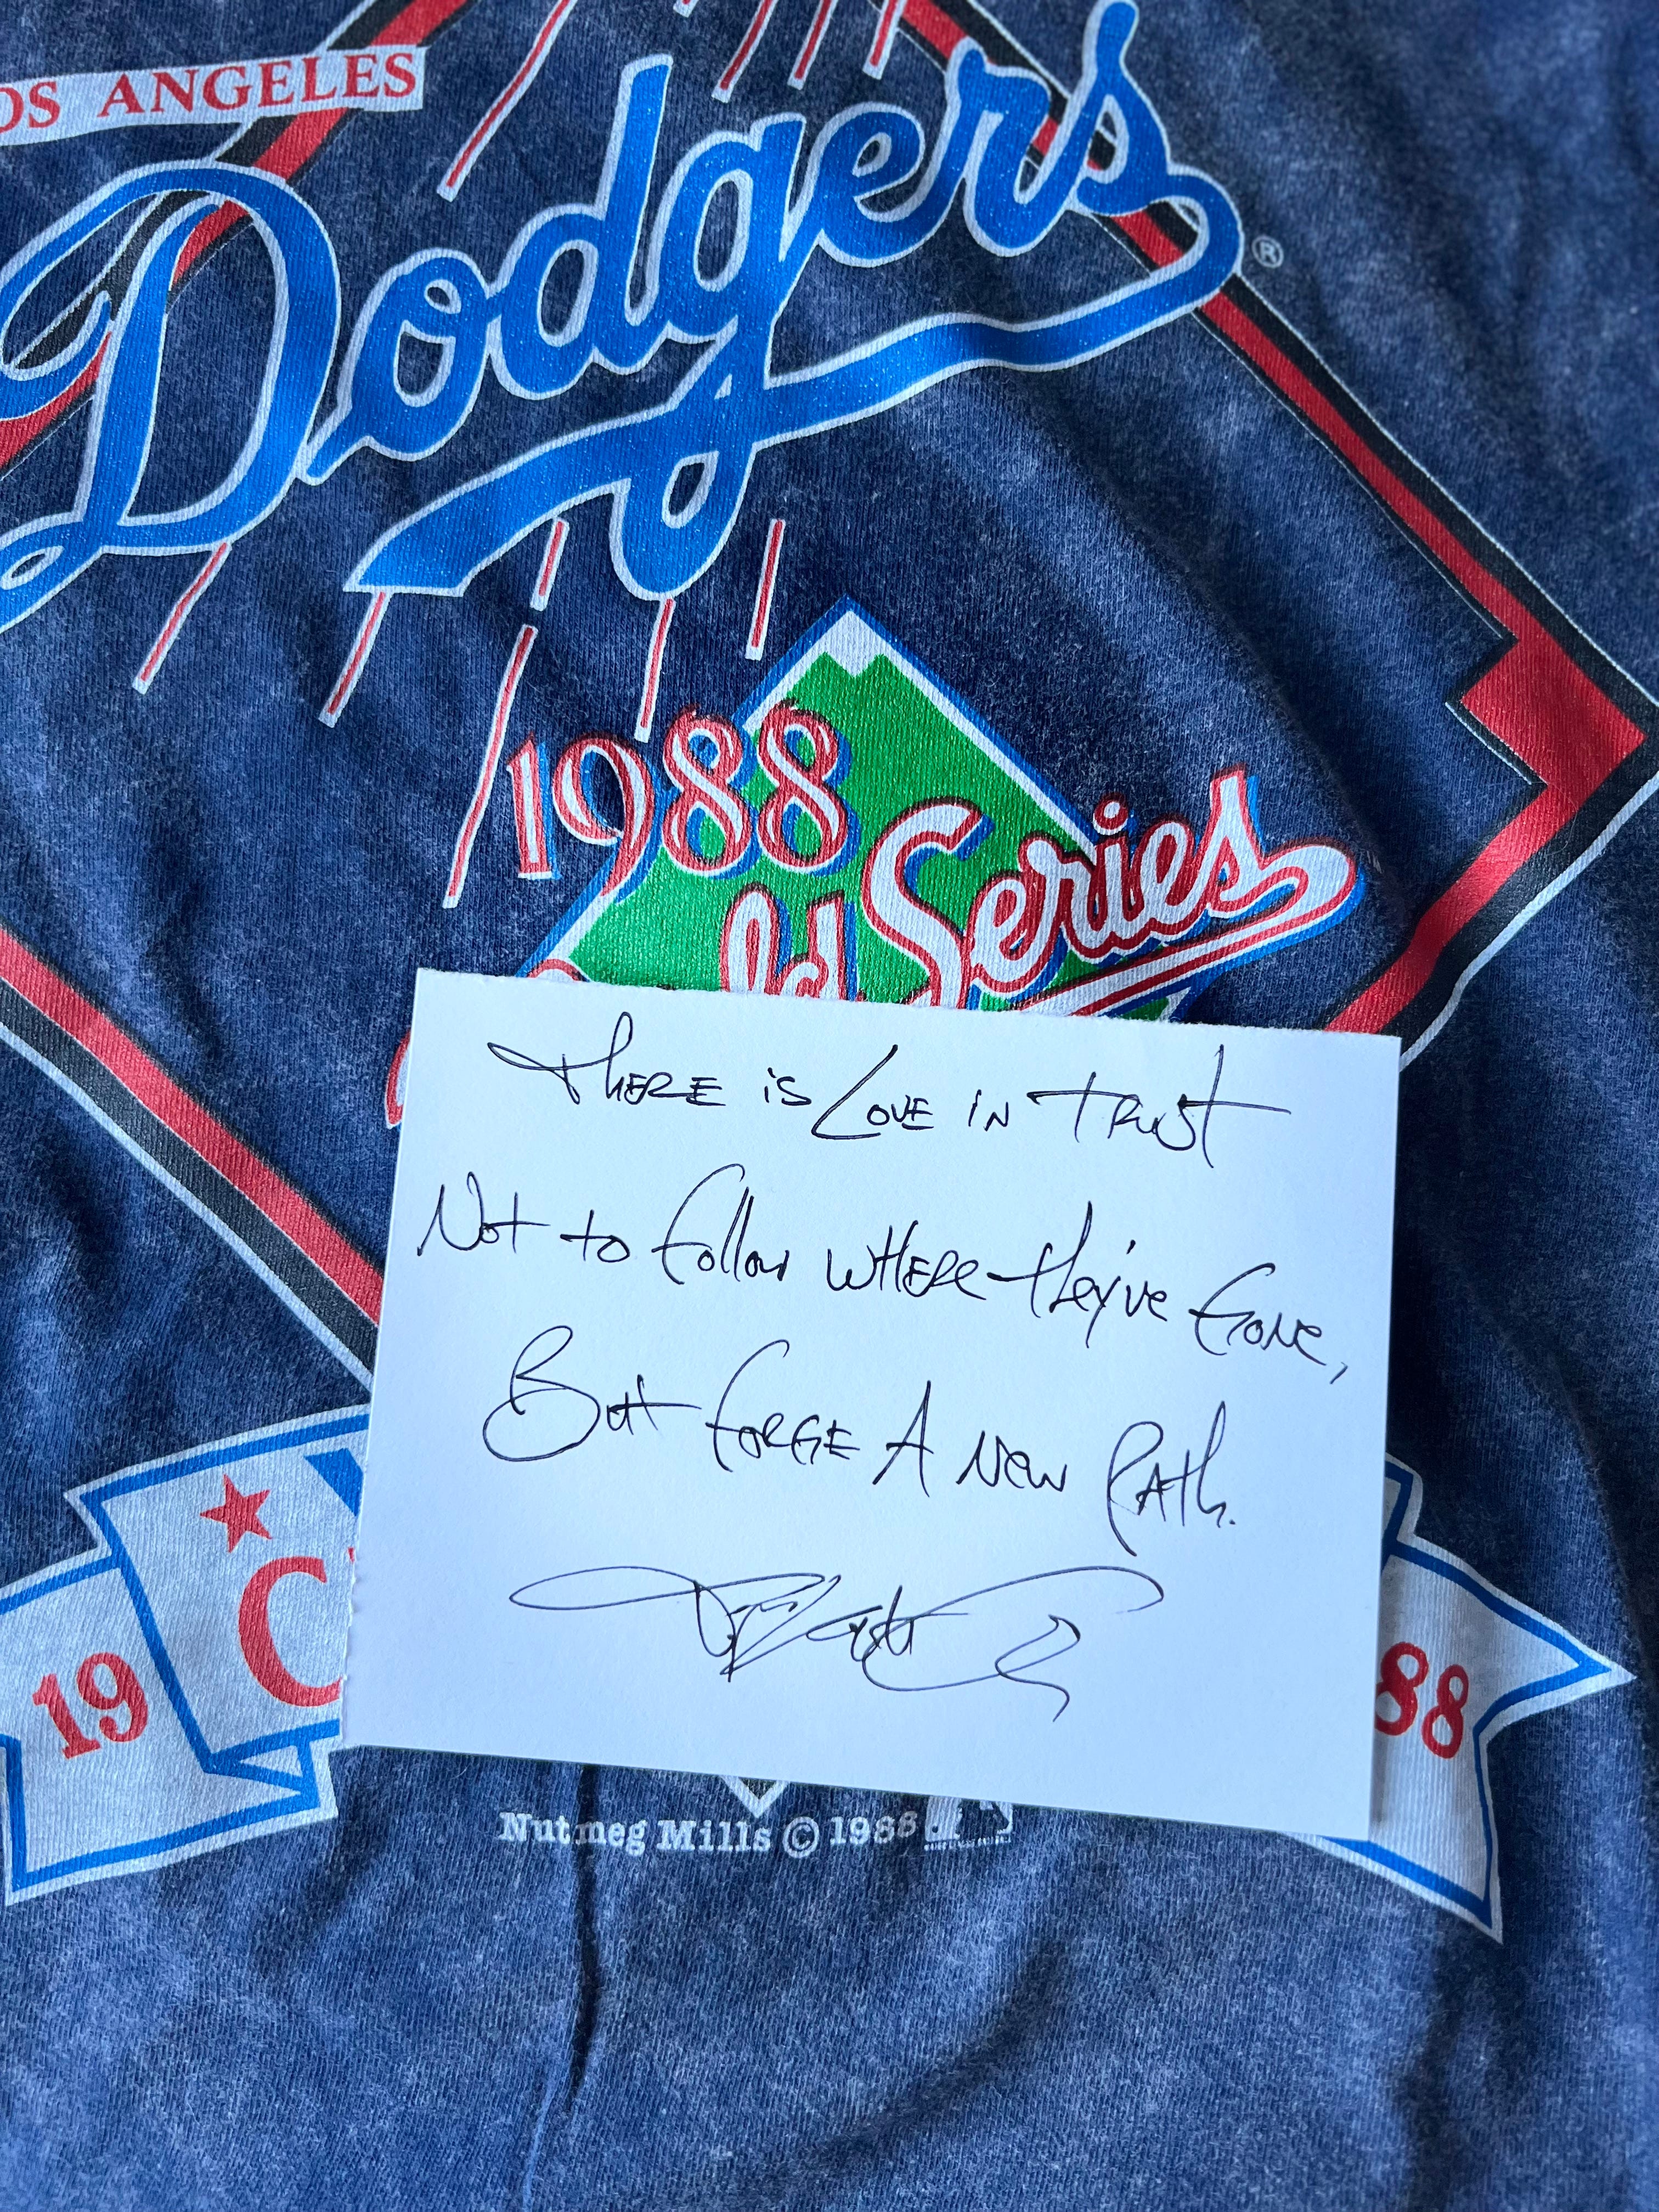 OS ANGELES
Dodgers ®
1988
ld Series
There is Love in Trust
Not to follow where they've gone,
But forge A New Path.
C
19 88
Nutmeg Mills © 1988